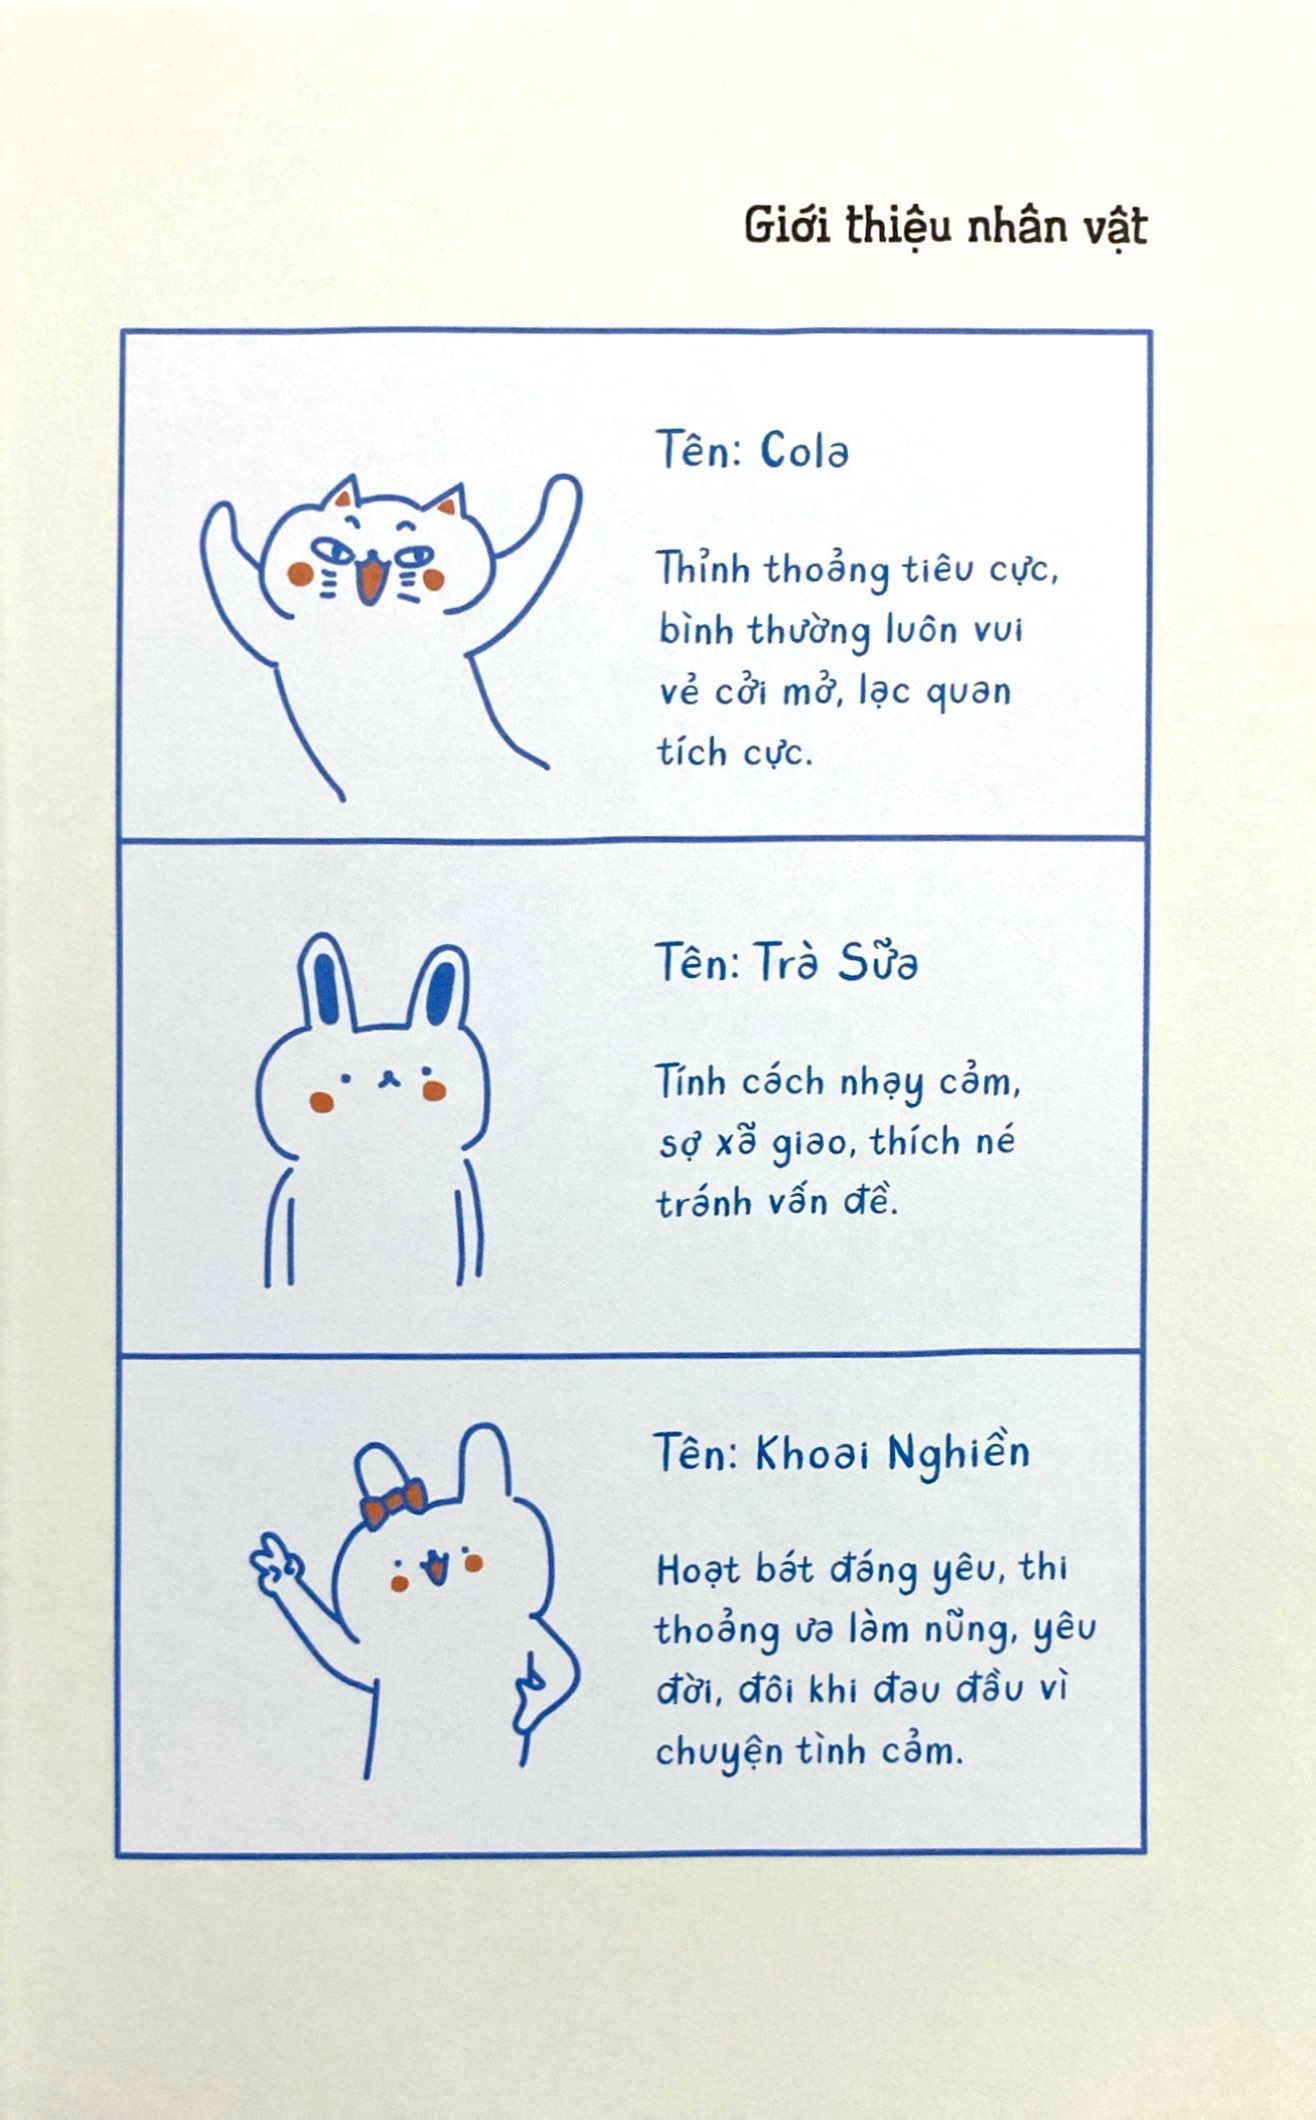 Giới thiệu nhân vật
Tên: Cola
Thỉnh thoảng tiêu cực,
bình thường luôn vui
vẻ cởi mở, lạc quan
tích cực.
Tên: Trà Sữa
Tính cách nhạy cảm,
sợ xã giao, thích né
tránh vấn đề.
Tên: Khoai Nghiền
Hoạt bát đáng yêu, thi
thoảng ưa làm nũng, yêu
đời, đôi khi đau đầu vì
chuyện tình cảm.